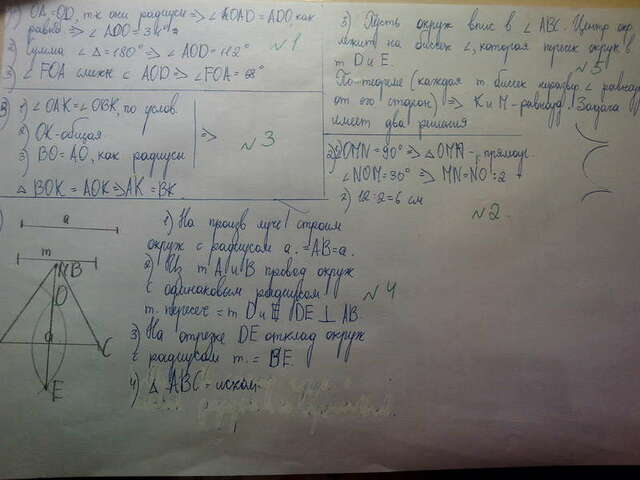 1) OA=OD, т.к они радиусы => ∠AOAD = ADO, как
равно => ∠ADO = 34°
2) Сумма ∠ Δ = 180° => ∠AOD = 112°
3) ∠ FOA смежн с AOD => ∠FOA = 68°
№1
3) 1) ∠OAK = ∠OBK, по услов.
2) OK-общая
3) BO = AO, как радиусы
=>
№3
Δ BOK = AOK => AK = BK
a
m
M B
D
a
C
E
1) На произв луче строим
окруж с радиусом a. = AB = a.
2) Из т A и B провод окруж
с одинаковым радиусом
т. пересеч = т D и E DE ⊥ AB.
3) На отрезке DE отклад окруж
с радиусом m. = BE.
4) Δ ABC = иском
№4
5) Пусть окруж впис в ∠ ABC. Центр окр
лежит на биссек ∠, которая пересек окруж в
т D и E.
№5
По теореме (каждая т биссек неразвер. ∠ равноу
от его сторон) => K и M - равноуд. Задача
имеет два решения
2) 1) ∠OMN = 90° => Δ OMN - прямоуг.
∠NOM = 30° => MN = NO : 2
2) 12 : 2 = 6 см
№2